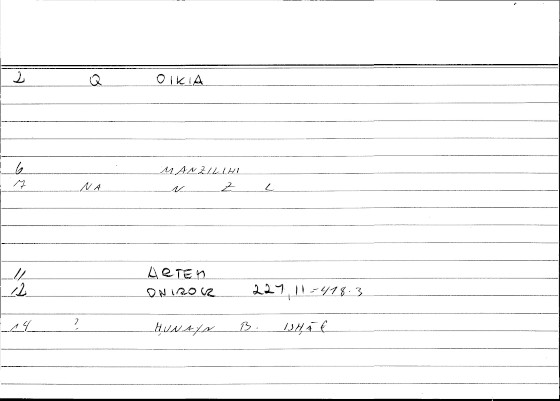 2 Q OIKIA
6 MANZILIHI
7 NA N Z L
11 ARTEM
12 ONIROCR 227,11-418.3
14 ? ḤUNAYN B. ISḤĀQ